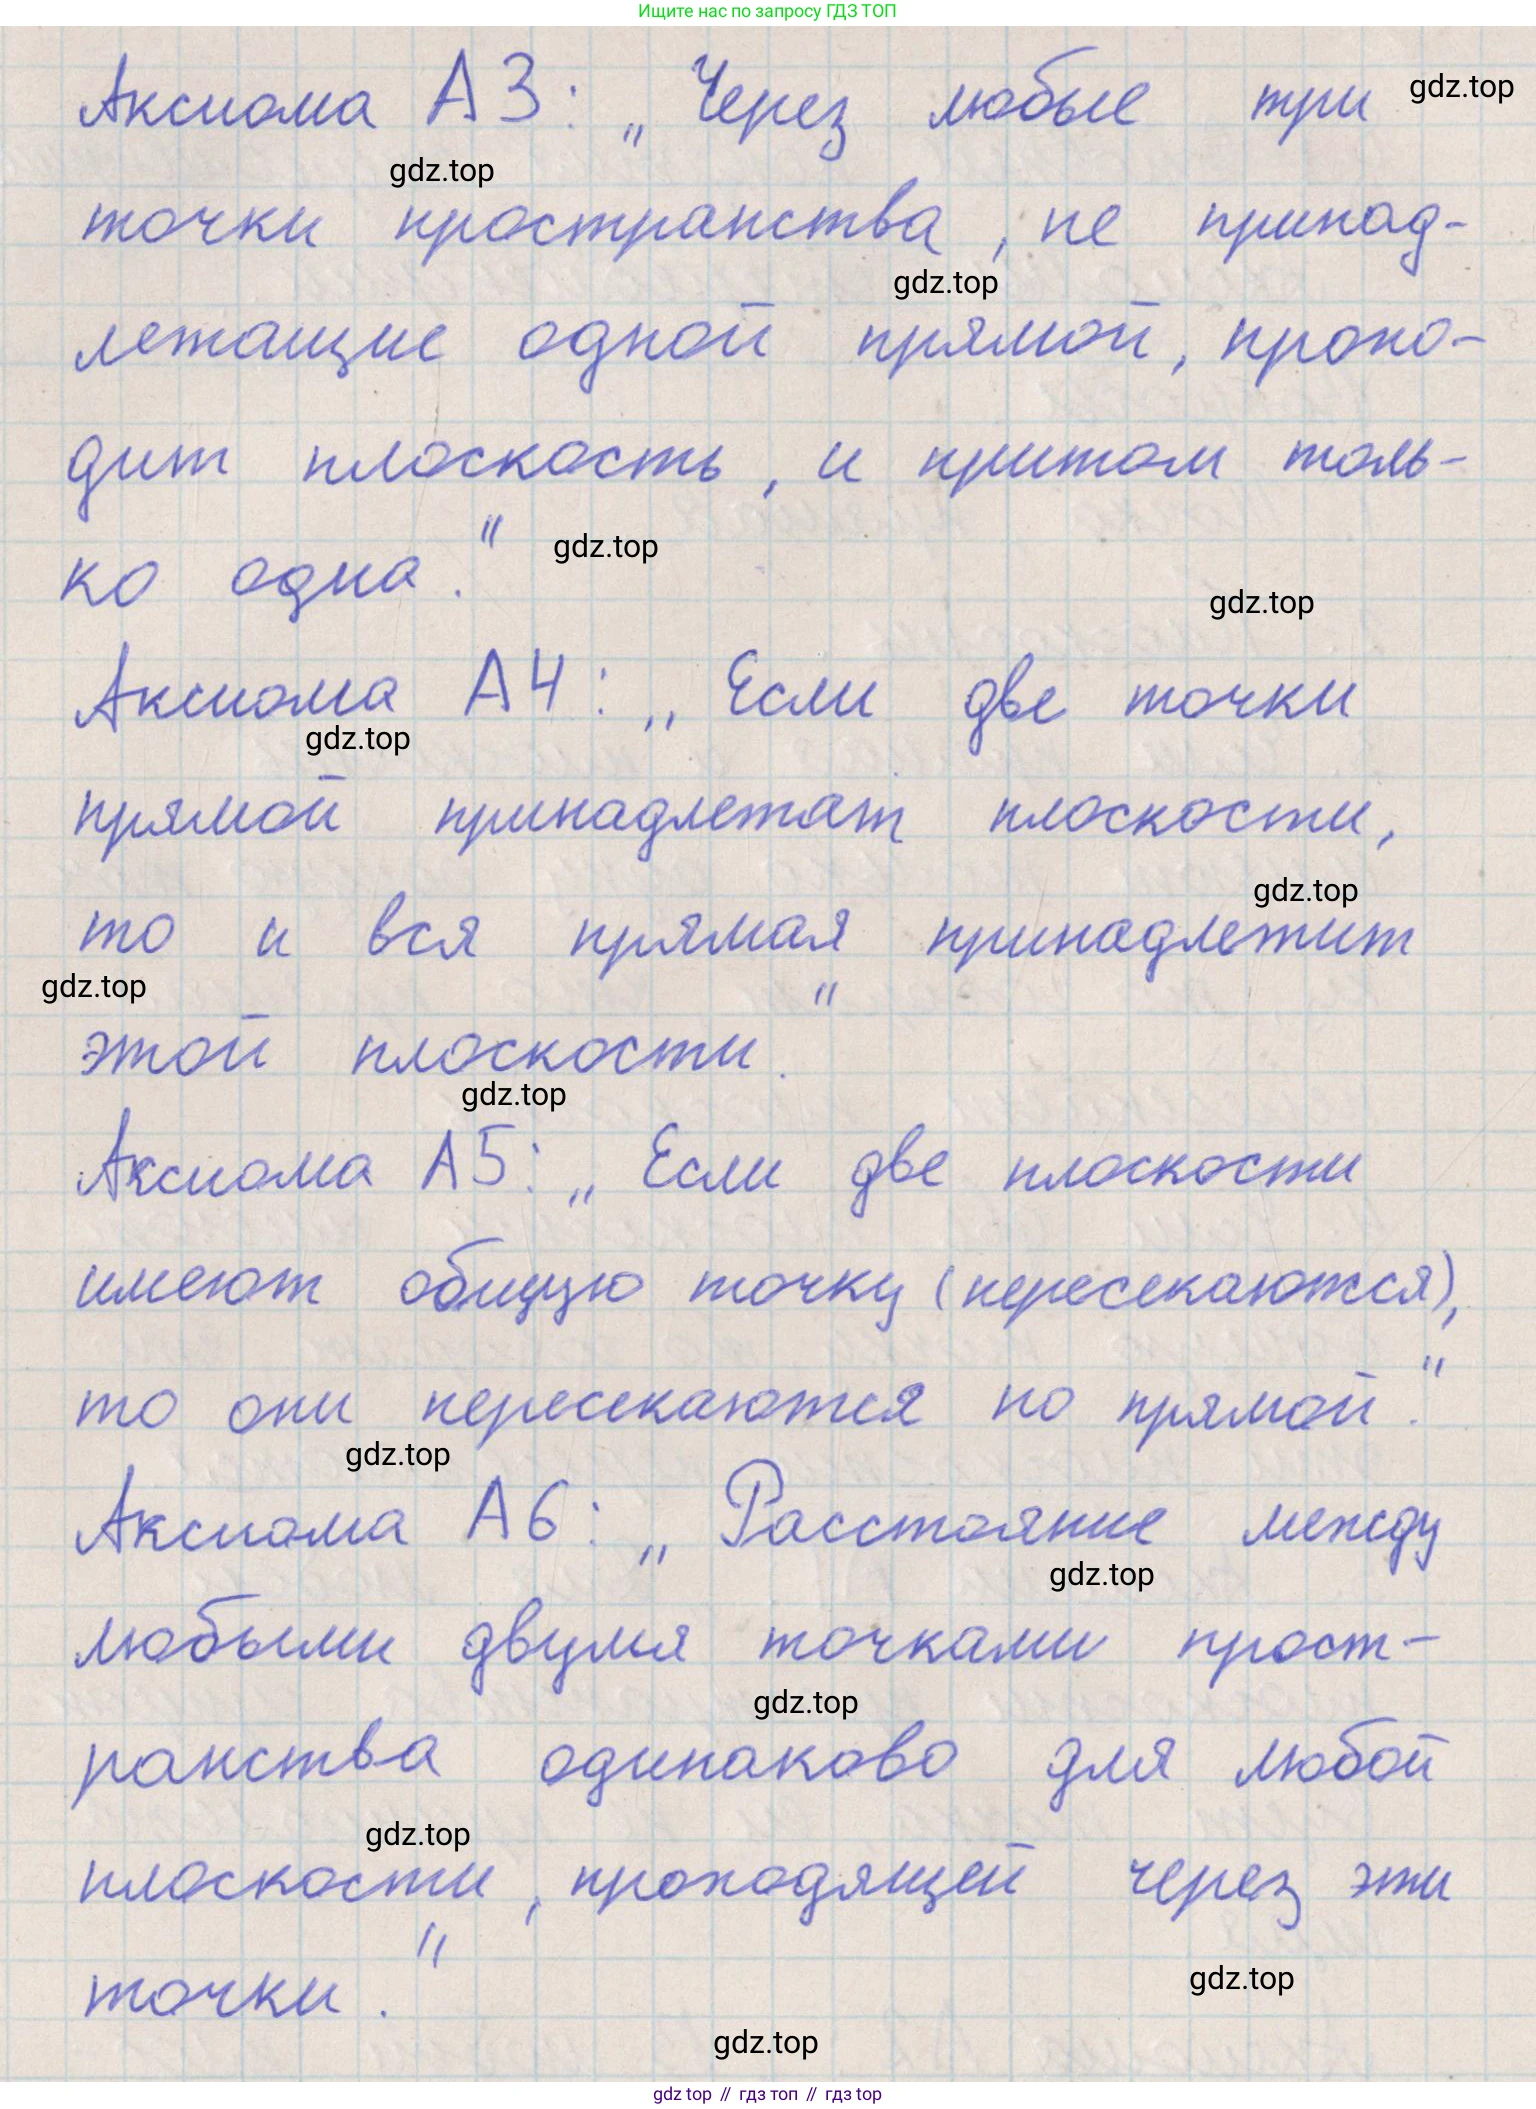 Ищите нас по запросу ГДЗ ТОП
Аксиома А3: „Через любые три
gdz.top
gdz.top
точки пространства, не принад-
gdz.top
лежащие одной прямой, прохо-
дит плоскость, и притом толь-
ко одна."
gdz.top
gdz.top
Аксиома А4: „Если две точки
gdz.top
прямой принадлежат плоскости,
gdz.top
то и вся прямая принадлежит
gdz.top
этой плоскости."
gdz.top
Аксиома А5: „Если две плоскости
имеют общую точку (пересекаются),
то они пересекаются по прямой."
gdz.top
Аксиома А6: „Расстояние между
gdz.top
любыми двумя точками прост-
gdz.top
ранства одинаково для любой
gdz.top
плоскости, проходящей через эти
точки."
gdz.top
gdz.top
gdz top // гдз топ // гдз top